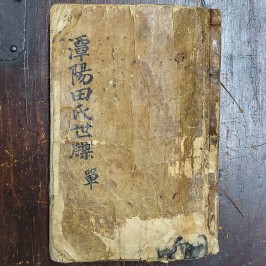 潭陽田氏世牒 單